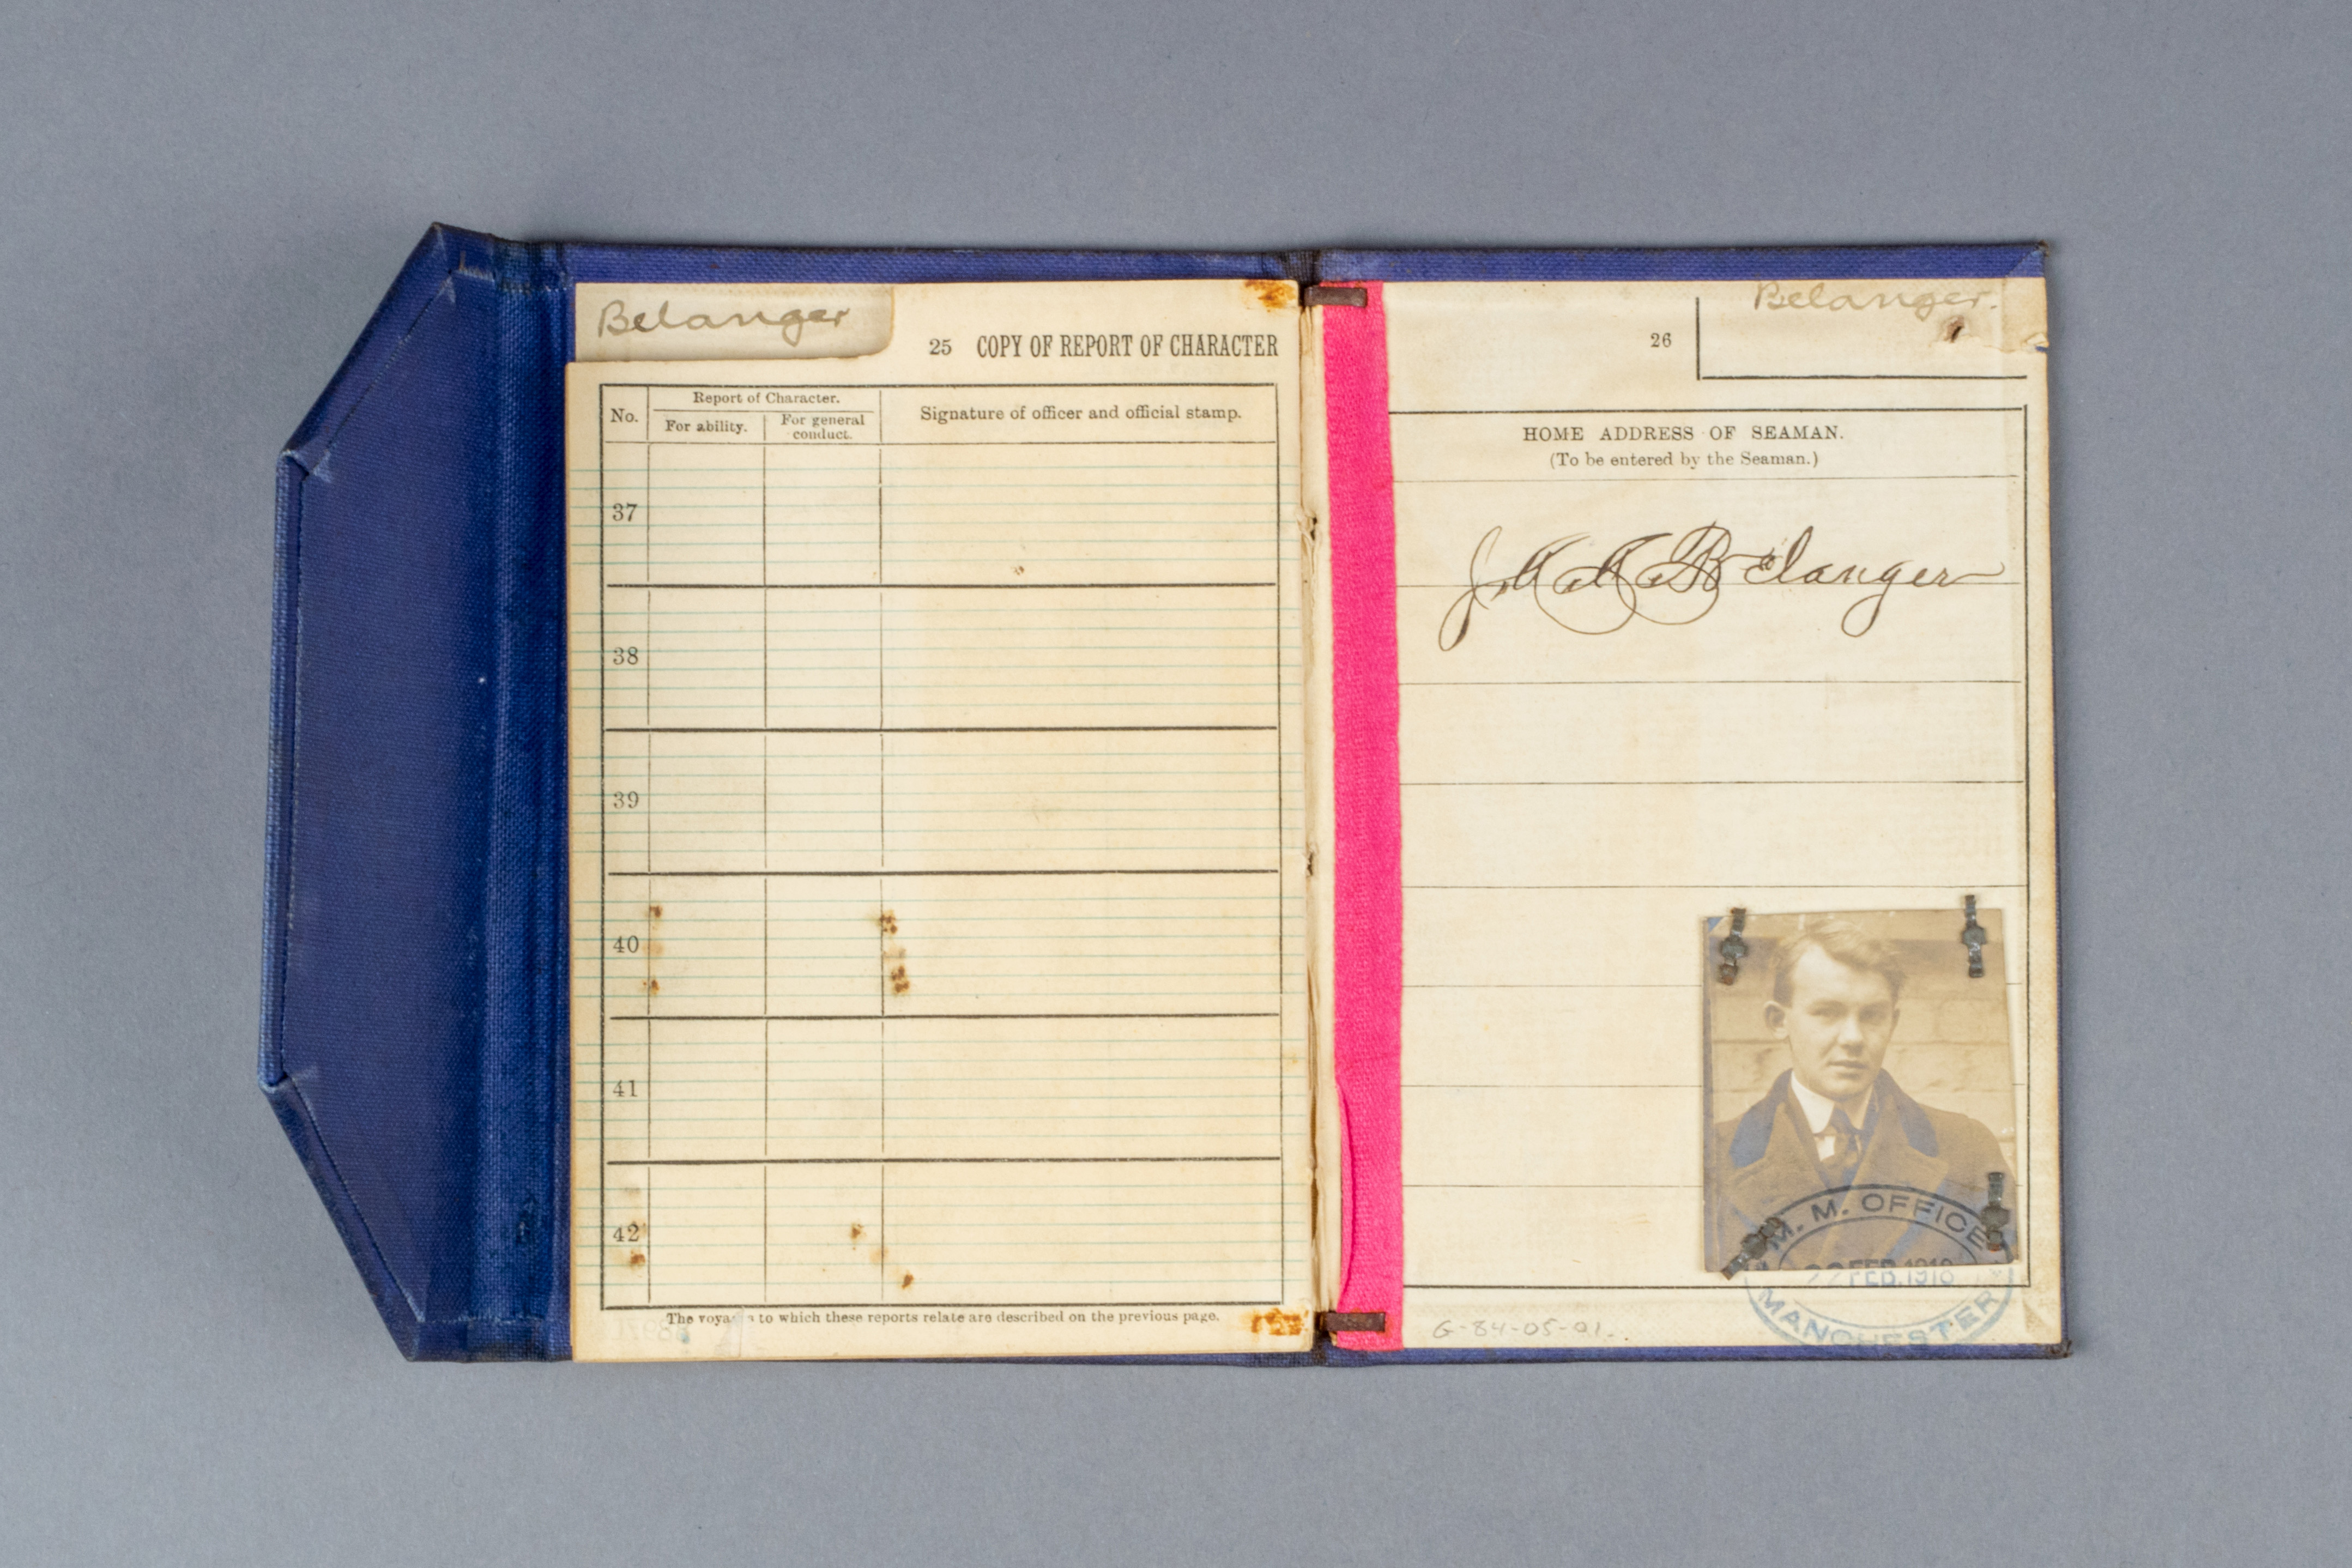 Belanger
25 COPY OF REPORT OF CHARACTER
No.
Report of Character.
For ability.
For general
conduct.
Signature of officer and official stamp.
37
38
39
40
41
42
The voya to which these reports relate are described on the previous page.
Belanger.
26
HOME ADDRESS OF SEAMAN.
(To be entered by the Seaman.)
Belanger
M. M. OFFICE
22 FEB. 1918
MANCHESTER
G-84-05-01.